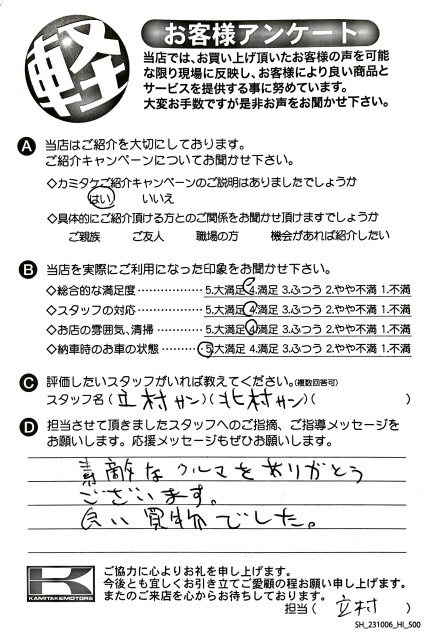 軽
お客様アンケート
当店では、お買い上げ頂いたお客様の声を可能
な限り現場に反映し、お客様により良い商品と
サービスを提供する事に努めています。
大変お手数ですが是非お声をお聞かせ下さい。
A 当店はご紹介を大切にしております。
ご紹介キャンペーンについてお聞かせ下さい。
◇カミタケご紹介キャンペーンのご説明はありましたでしょうか
はい いいえ
◇具体的にご紹介頂ける方とのご関係をお聞かせ頂けますでしょうか
ご親族 ご友人 職場の方 機会があれば紹介したい
B 当店を実際にご利用になった印象をお聞かせ下さい。
◇総合的な満足度…………5.大満足 4.満足 3.ふつう 2.やや不満 1.不満
◇スタッフの対応…………5.大満足 4.満足 3.ふつう 2.やや不満 1.不満
◇お店の雰囲気、清掃……5.大満足 4.満足 3.ふつう 2.やや不満 1.不満
◇納車時のお車の状態……5.大満足 4.満足 3.ふつう 2.やや不満 1.不満
C 評価したいスタッフがいれば教えてください。(複数回答可)
スタッフ名(立村サン)(北村サン)( )
D 担当させて頂きましたスタッフへのご指摘、ご指導メッセージを
お願いします。応援メッセージもぜひお願いします。
素敵なクルマをありがとう
ございます。
良い買物でした。
KAMITAKEMOTORS
ご協力に心よりお礼を申し上げます。
今後とも宜しくお引き立てご愛顧の程お願い申し上げます。
またのご来店を心からお待ちしております。
担当( 立村 )
SH_231006_HI_500